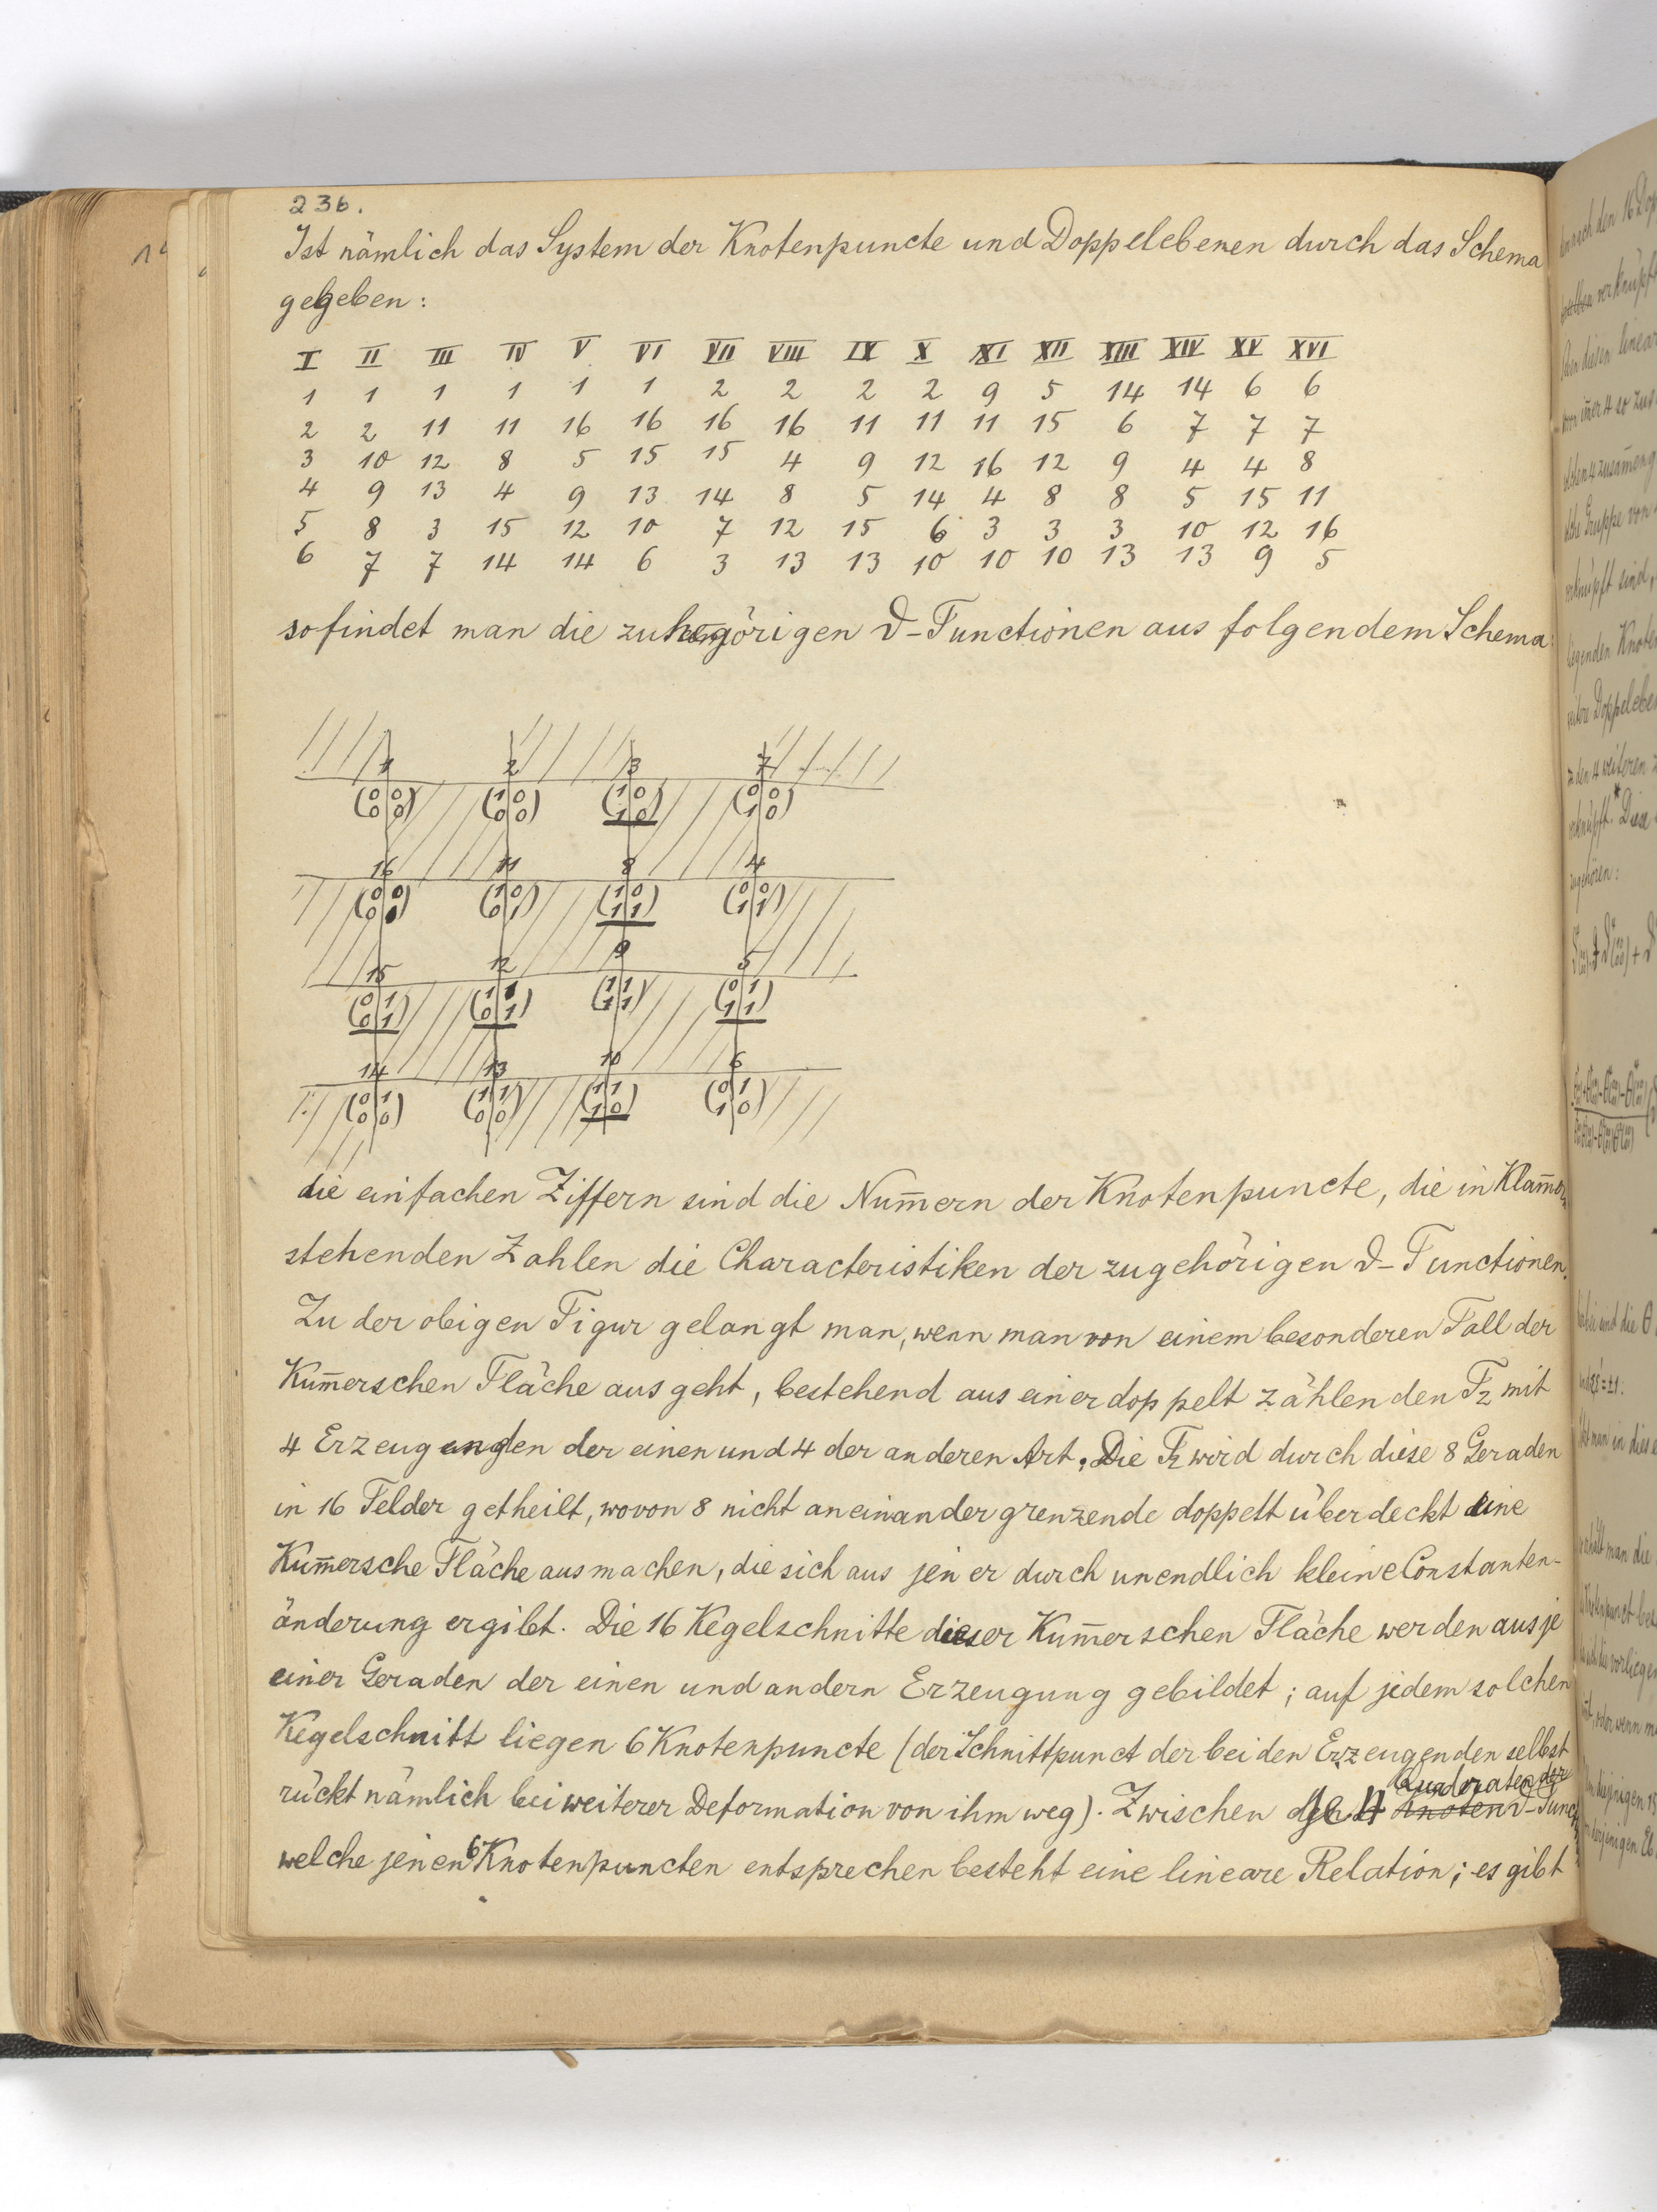 236.
Ist nämlich das System der Knotenpuncte und Doppelebenen durch das Schema
gegeben:
I II III IV V VI VII VIII IX X XI XII XIII XIV XV XVI
1 1 1 1 1 1 2 2 2 2 9 5 14 14 6 6
2 2 11 11 16 16 16 16 11 11 11 15 6 7 7 7
3 10 12 8 5 15 15 4 9 12 16 12 9 4 4 8
4 9 13 4 9 13 14 8 5 14 4 8 8 5 15 11
5 8 3 15 12 10 7 12 15 6 3 3 3 10 12 16
6 7 7 14 14 6 3 13 13 10 10 10 13 13 9 5
so findet man die zugehörigen ϑ-Functionen aus folgendem Schema:
1 2 3 7
(00 00) (10 00) (10 10) (00 10)
16 11 8 4
(00 01) (10 01) (10 11) (00 11)
15 12 9 5
(01 01) (11 01) (11 11) (01 11)
14 13 10 6
(01 00) (11 00) (11 10) (01 10)
die einfachen Ziffern sind die Num̅ern der Knotenpuncte, die in Klam̅ern
stehenden Zahlen die Characteristiken der zugehörigen ϑ-Functionen.
Zu der obigen Figur gelangt man, wenn man von einem besonderen Fall der
Kum̅erschen Fläche ausgeht, bestehend aus einer doppelt zählenden F2 mit
4 Erzeugenden der einen und 4 der anderen Art. Die F2 wird durch diese 8 Geraden
in 16 Felder getheilt, wovon 8 nicht aneinandergrenzende doppelt überdeckt eine
Kum̅ersche Fläche ausmachen, die sich aus jener durch unendlich kleine Constanten-
änderung ergibt. Die 16 Kegelschnitte dieser Kum̅erschen Fläche werden aus je
einer Geraden der einen und andern Erzeugung gebildet; auf jedem solchen
Kegelschnitt liegen 6 Knotenpuncte (der Schnittpunct der beiden Erzeugenden selbst
rückt nämlich bei weiterer Deformation von ihm weg). Zwischen je 4 Quadraten der ϑ-Funct.
welche jenen 6 Knotenpuncten entsprechen besteht eine lineare Relation; es gibt